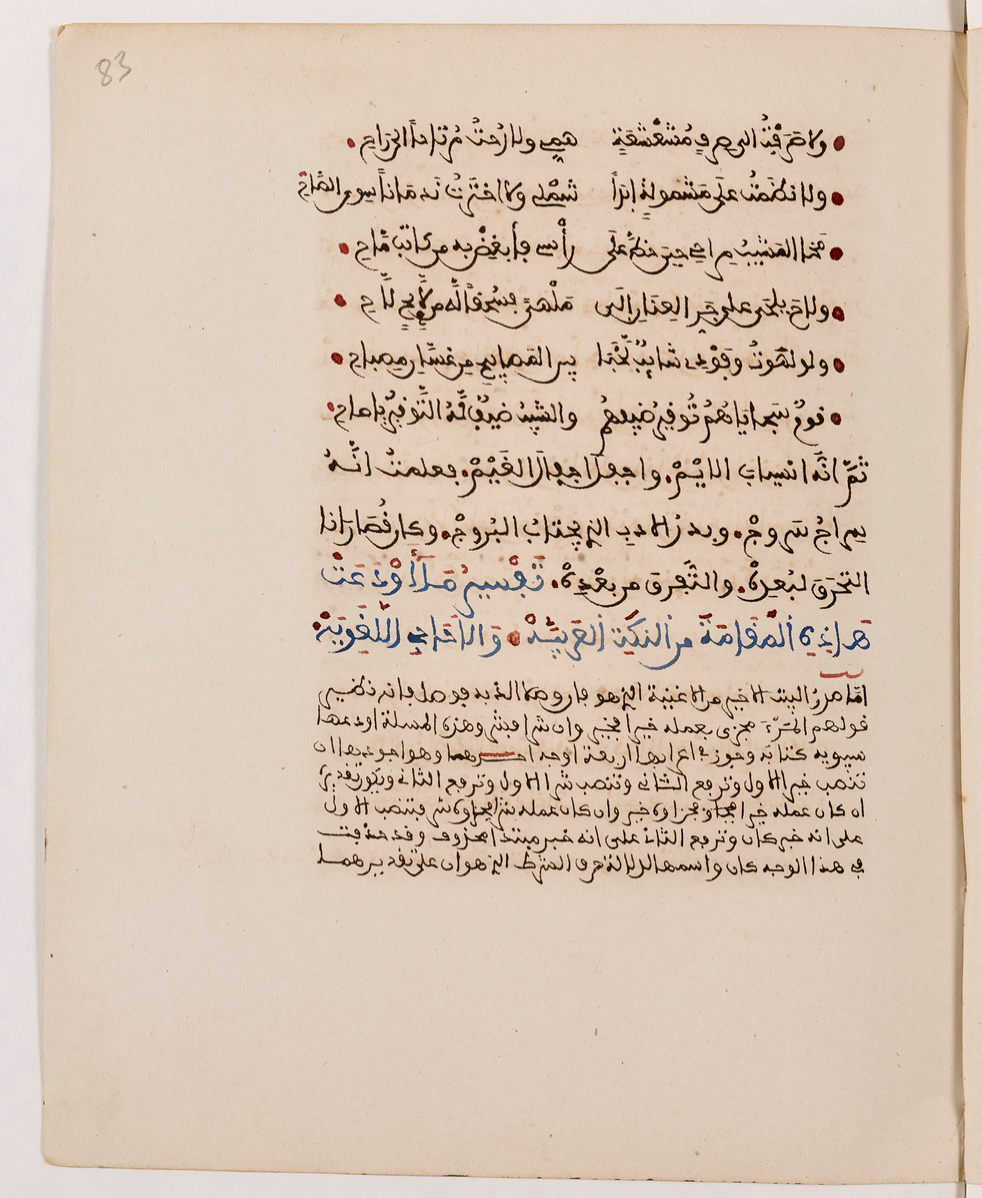 83
ولا صَرَفْتُ الى صرفٍ مُشَعْشَعَةٍ همي ولا رُحتُ مُرتاحاً الى راحِ
ولا نظمتُ على مشمولةٍ ابداً شملي ولا اخترتُ ندماناً سوى الصاحِ
محا المشيبُ مراحي حين خطَّ على رأسي فأبغِضْ به من كاتبٍ ماحِ
ولاحَ يلحى على جَرِ العنان الى ملْهىً فسُحْقاً لَّه من لَّائحٍ لَّاحِ
ولو لهوتُ وفَوْدى شايبٌ لَّخَبا بين المصابيح من غسّان مصباحِ
قومٌ سجاياهُم تُوقيرُ ضيفهمُ والشيبُ ضيفٌ لَّهُ التّوقيرُ ياصاحِ
ثمّ انَّه انسياب الايْمْ. واجفلَ اجفالَ الغَيْمْ. فعلمتُ انَّهُ
سراجُ سَروجْ. وبدرُ الادب الذي يجتابُ البُروجْ. وكان قُصارانا
التحرقَ لبُعدِهْ. والتَّفرقَ من بعْدِهْ. تَفْسِيرُ مَا أُوْدِعَتْ
هاذِهِ المَقامَةُ من النكَتِ العَربِيَّهْ والاحاجي اللُّغَوِيَّهْ.
امّا صدرُ البيت الاخير من الاغنية الذي هو فان وصلا الذ به فوصل فانه نظير
قولهم المَرْءُ مجزى بعمله خيرا فخير وان شرا فشر وهذه المسلة اودعها
سيبويه كتابه وجوز في اعرابها اربعة اوجه احدهما وهو اجودها ان
تنصب خير الاول وترفع الثانى وتنصب شر الاول وترفع الثانى ويكون تقديره
ان كان عمله خيرا فجزاوه خير وان كان عمله شرا فجزاوه شر فتنصب الاول
على انه خبر كان وترفع الثانى على انه خبر مبتدا محذوف وقد حذفت
في هذا الوجه كان واسمها لدلالة حرف الشرط الذي هو ان على تقديرهما